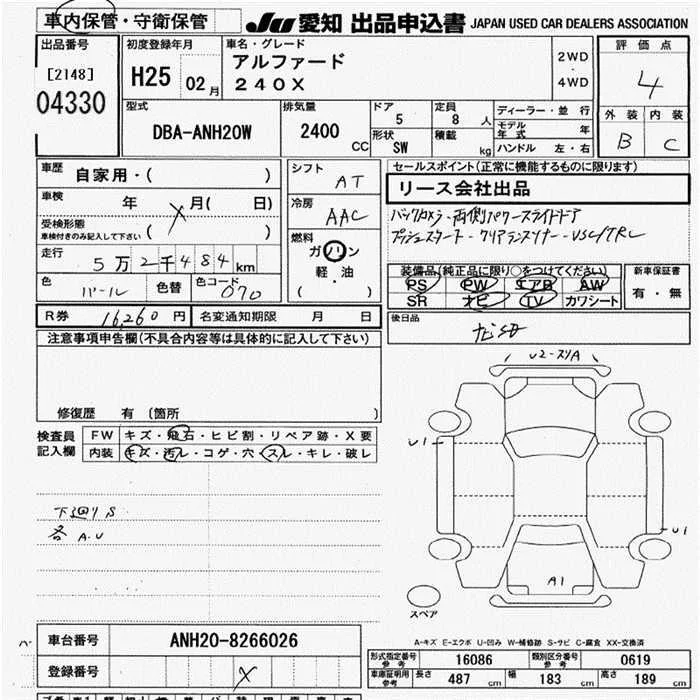 車内保管・守衛保管
JU 愛知 出品申込書 JAPAN USED CAR DEALERS ASSOCIATION
出品番号
[2148]
04330
初度登録年月
H25 02月
車名・グレード
アルファード
240X
2WD
・
4WD
評価点
4
外装 内装
B C
型式
DBA-ANH20W
排気量
2400 CC
ドア
5
定員
8 人
形状
SW
積載
kg
ディーラー・並行
モデル年式 年
ハンドル 左・右
車歴
自家用・( )
車検
年 X 月( 日)
受検形態
車検付きのみ記入して下さい ( )
走行
5万2千484km
色
パール
色替
色コード
070
シフト
AT
冷房
AAC
燃料
ガソリン
軽・油
( )
セールスポイント(正常に機能するものに限ります)
リース会社出品
バックカメラ・両側パワースライドドア
プッシュスタート・クリアランスソナー・VSC/TRC
装備品(純正品に限り○をつけてください)
PS PW エアB AW
SR ナビ TV カワシート
新車保証書
有・無
R券 16,260 円
名変通知期限 月 日
後日品
ナビSD
注意事項申告欄(不具合内容等は具体的に記入して下さい)
修復歴 有 (箇所 )
検査員
記入欄
FW キズ・飛石・ヒビ割・リペア跡・X要
内装 キズ・汚レ・コゲ・穴・スレ・キレ・破レ
下廻りS
各A.U
U2-スリA
U1
U1
A1
スペア
A-キズ E-エクボ U-凹み W-補修跡 S-サビ C-腐食 XX-交換済
車台番号 ANH20-8266026
登録番号 X
形式指定番号
参考
16086
類別区分番号
参考
0619
車庫証明用
参考
長さ 487 cm 幅 183 cm 高さ 189 cm